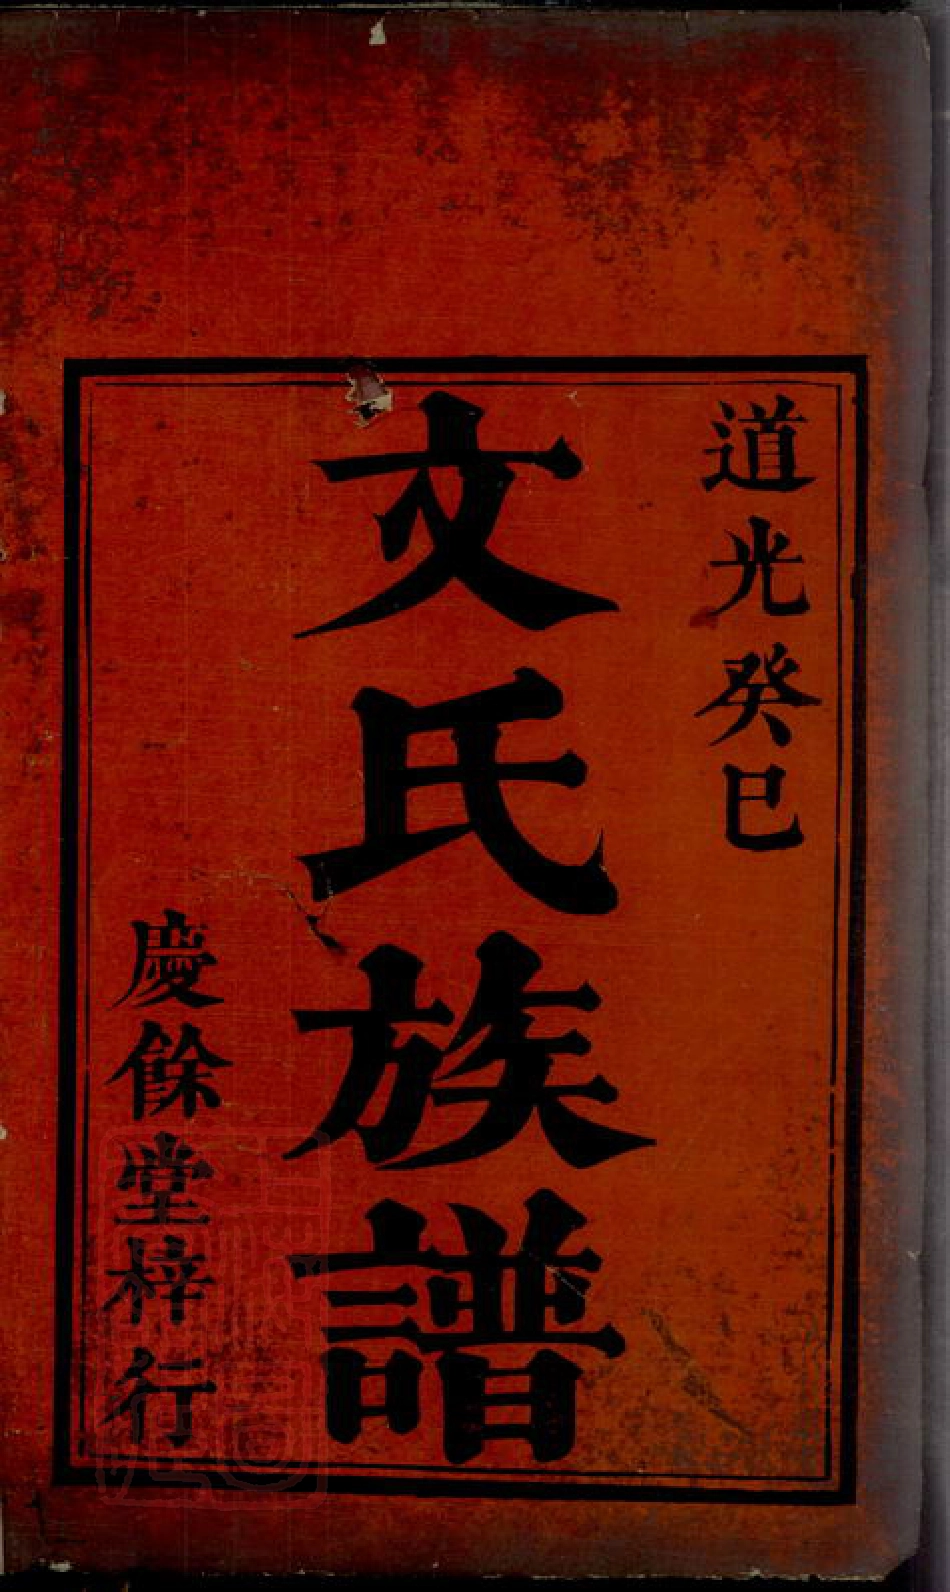 道光癸巳
文氏族譜
慶餘堂梓行